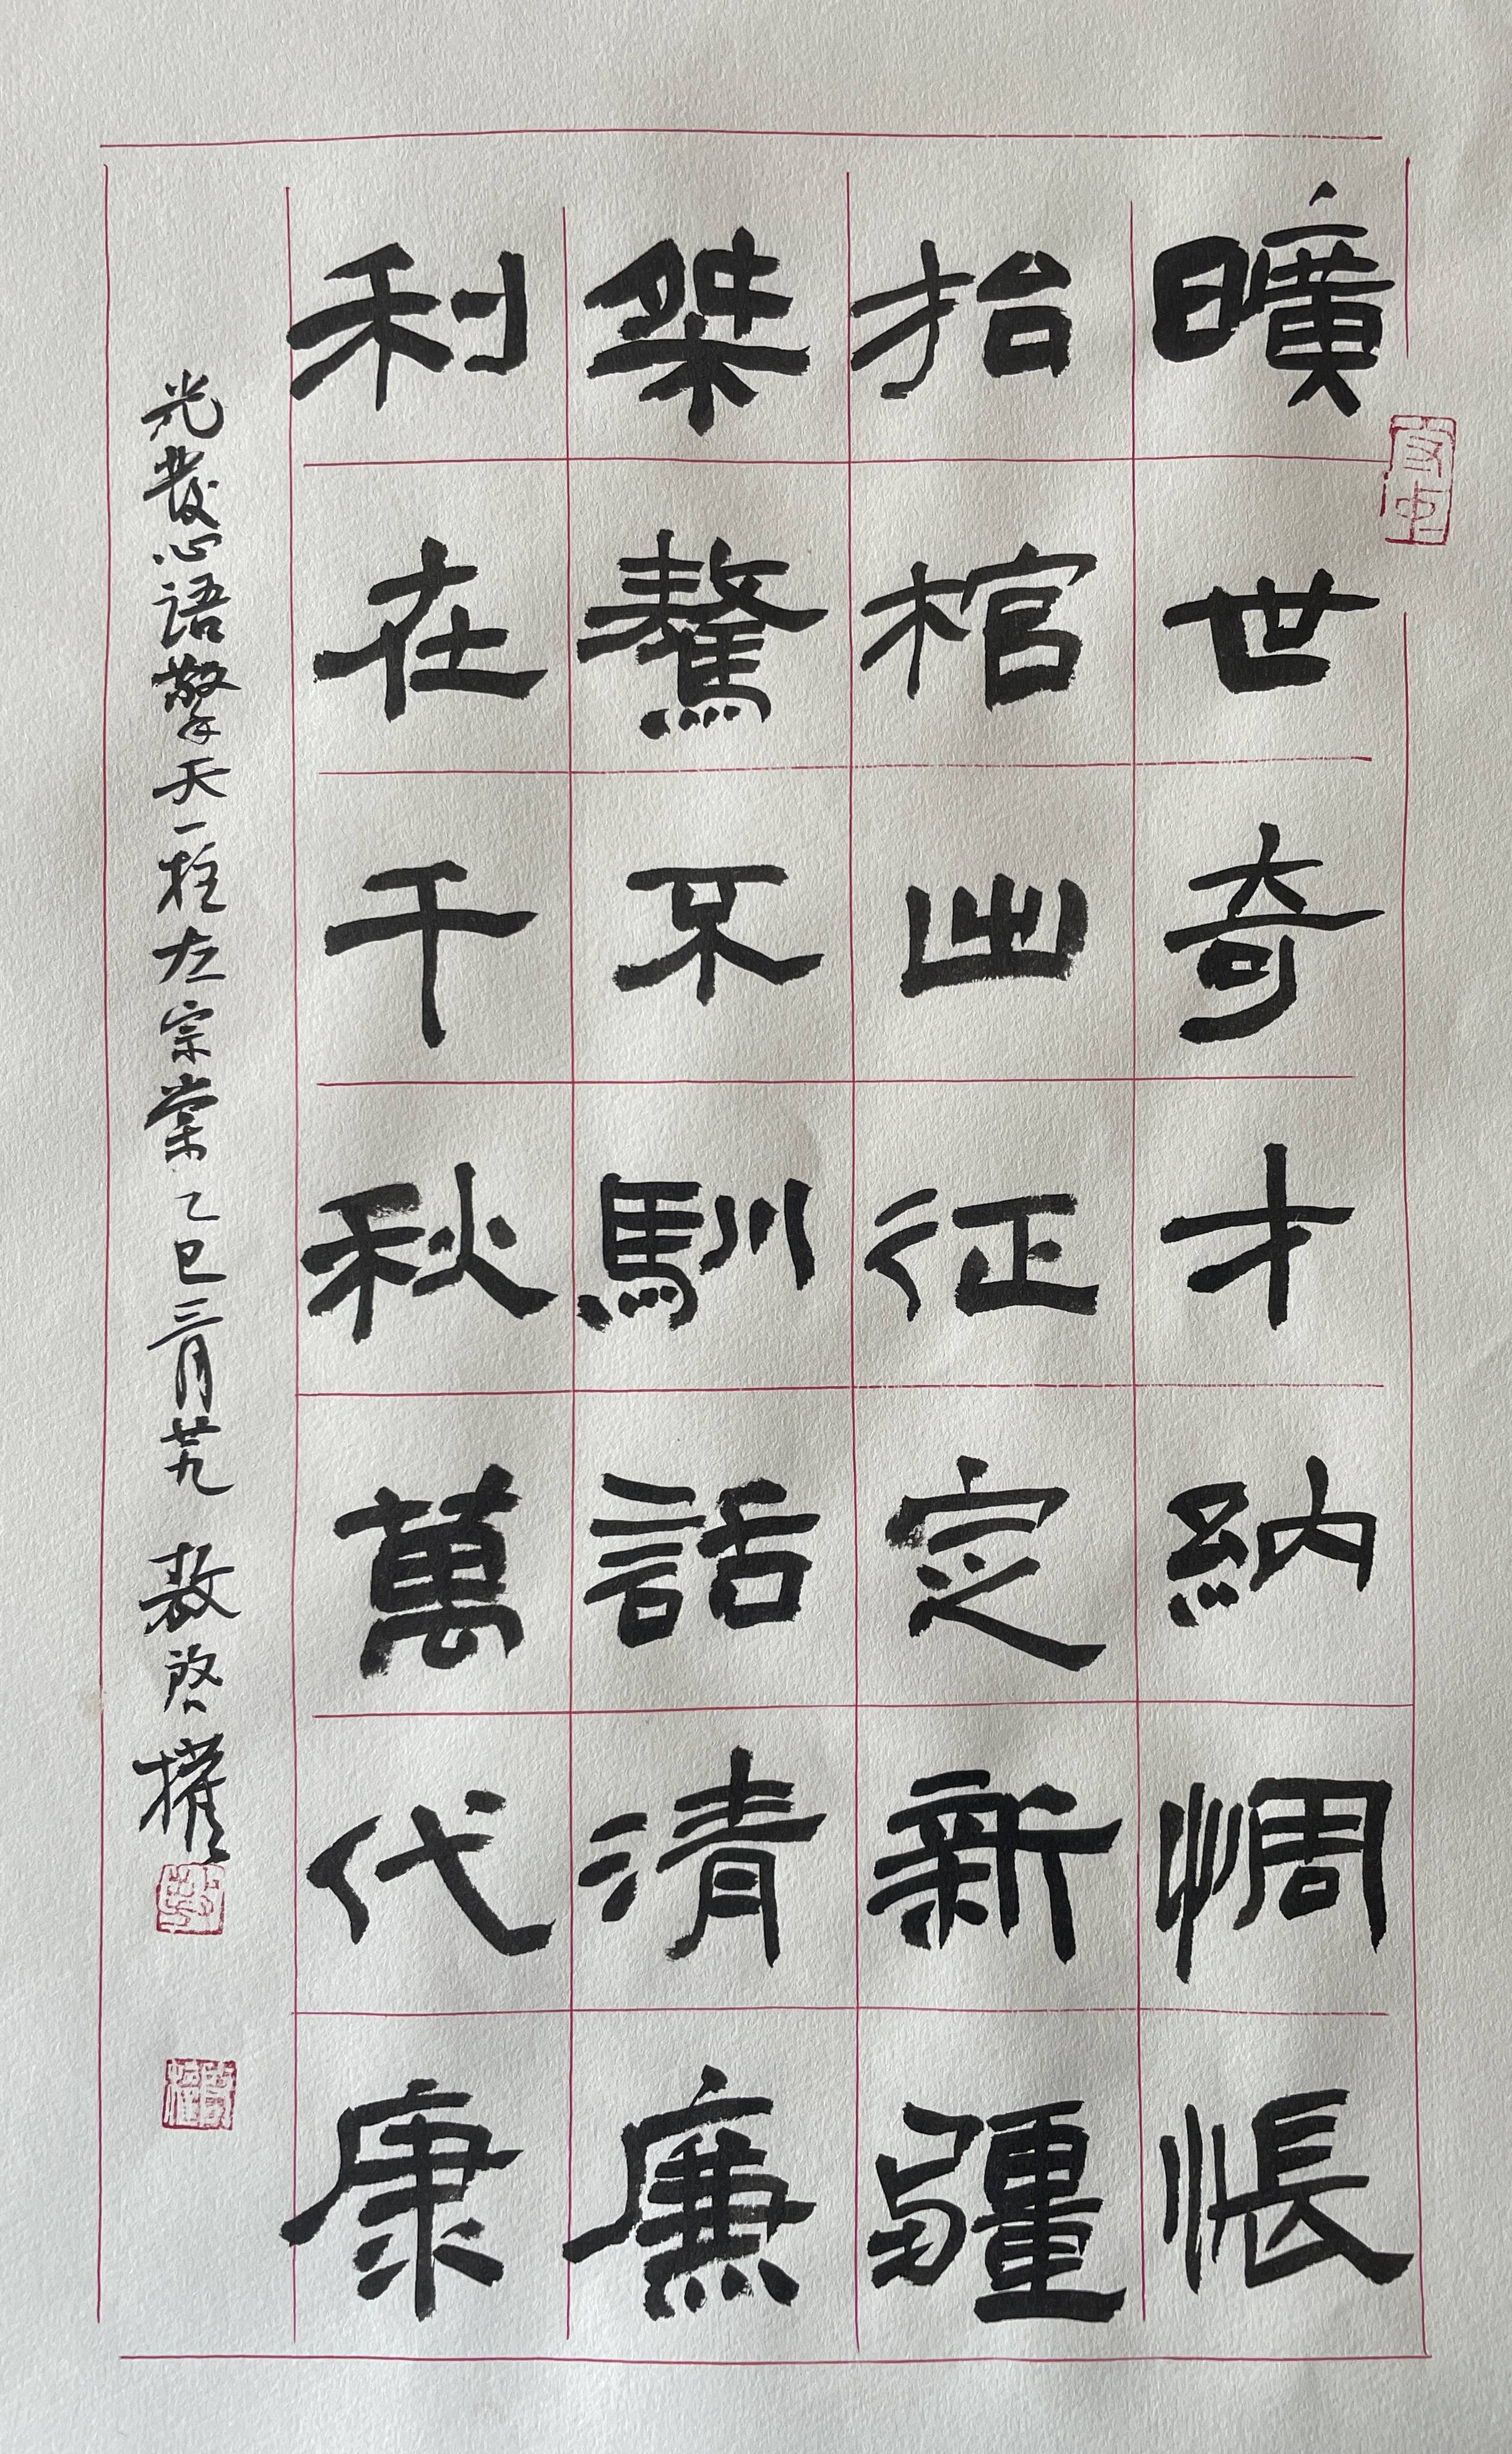 曠世奇才納惆悵
抬棺出征定新疆
桀驁不馴話清廉
利在千秋萬代康
光發心語擎天一柱左宗棠乙巳三月廿九 敖啓權